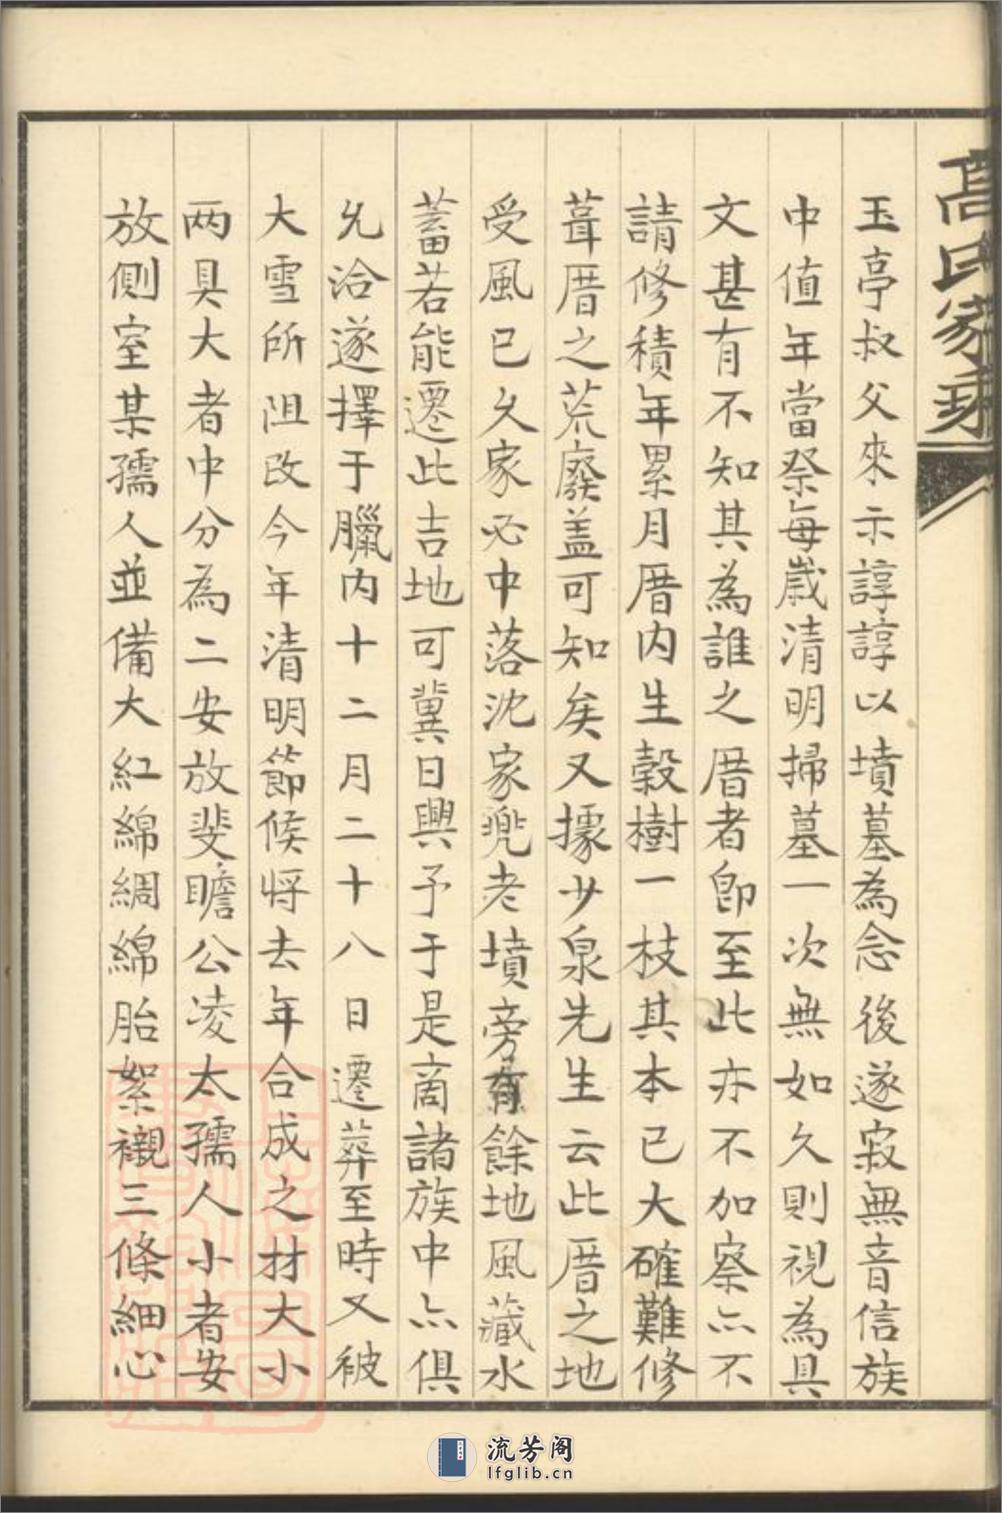 高氏家
玉亭叔父來示諄諄以墳墓為念後遂寂無音信族
中值年當祭每歲清明掃墓一次無如久則視為具
文甚有不知其為誰之厝者卽至此亦不加察亦不
請修積年累月厝內生穀樹一枝其本已大確難修
葺厝之荒廢盖可知矣又據少泉先生云此厝之地
受風已久家必中落沈家兜老墳旁有餘地風藏水
蓄若能遷此吉地可冀日興予于是商諸族中亦俱
允洽遂擇于臘內十二月二十八日遷葬至時又被
大雪所阻改今年清明節候将去年合成之材大小
两具大者中分為二安放斐瞻公凌太孺人小者安
放側室某孺人並備大紅綿綢綿胎絮襯三條細心
流芳阁
lfglib.cn